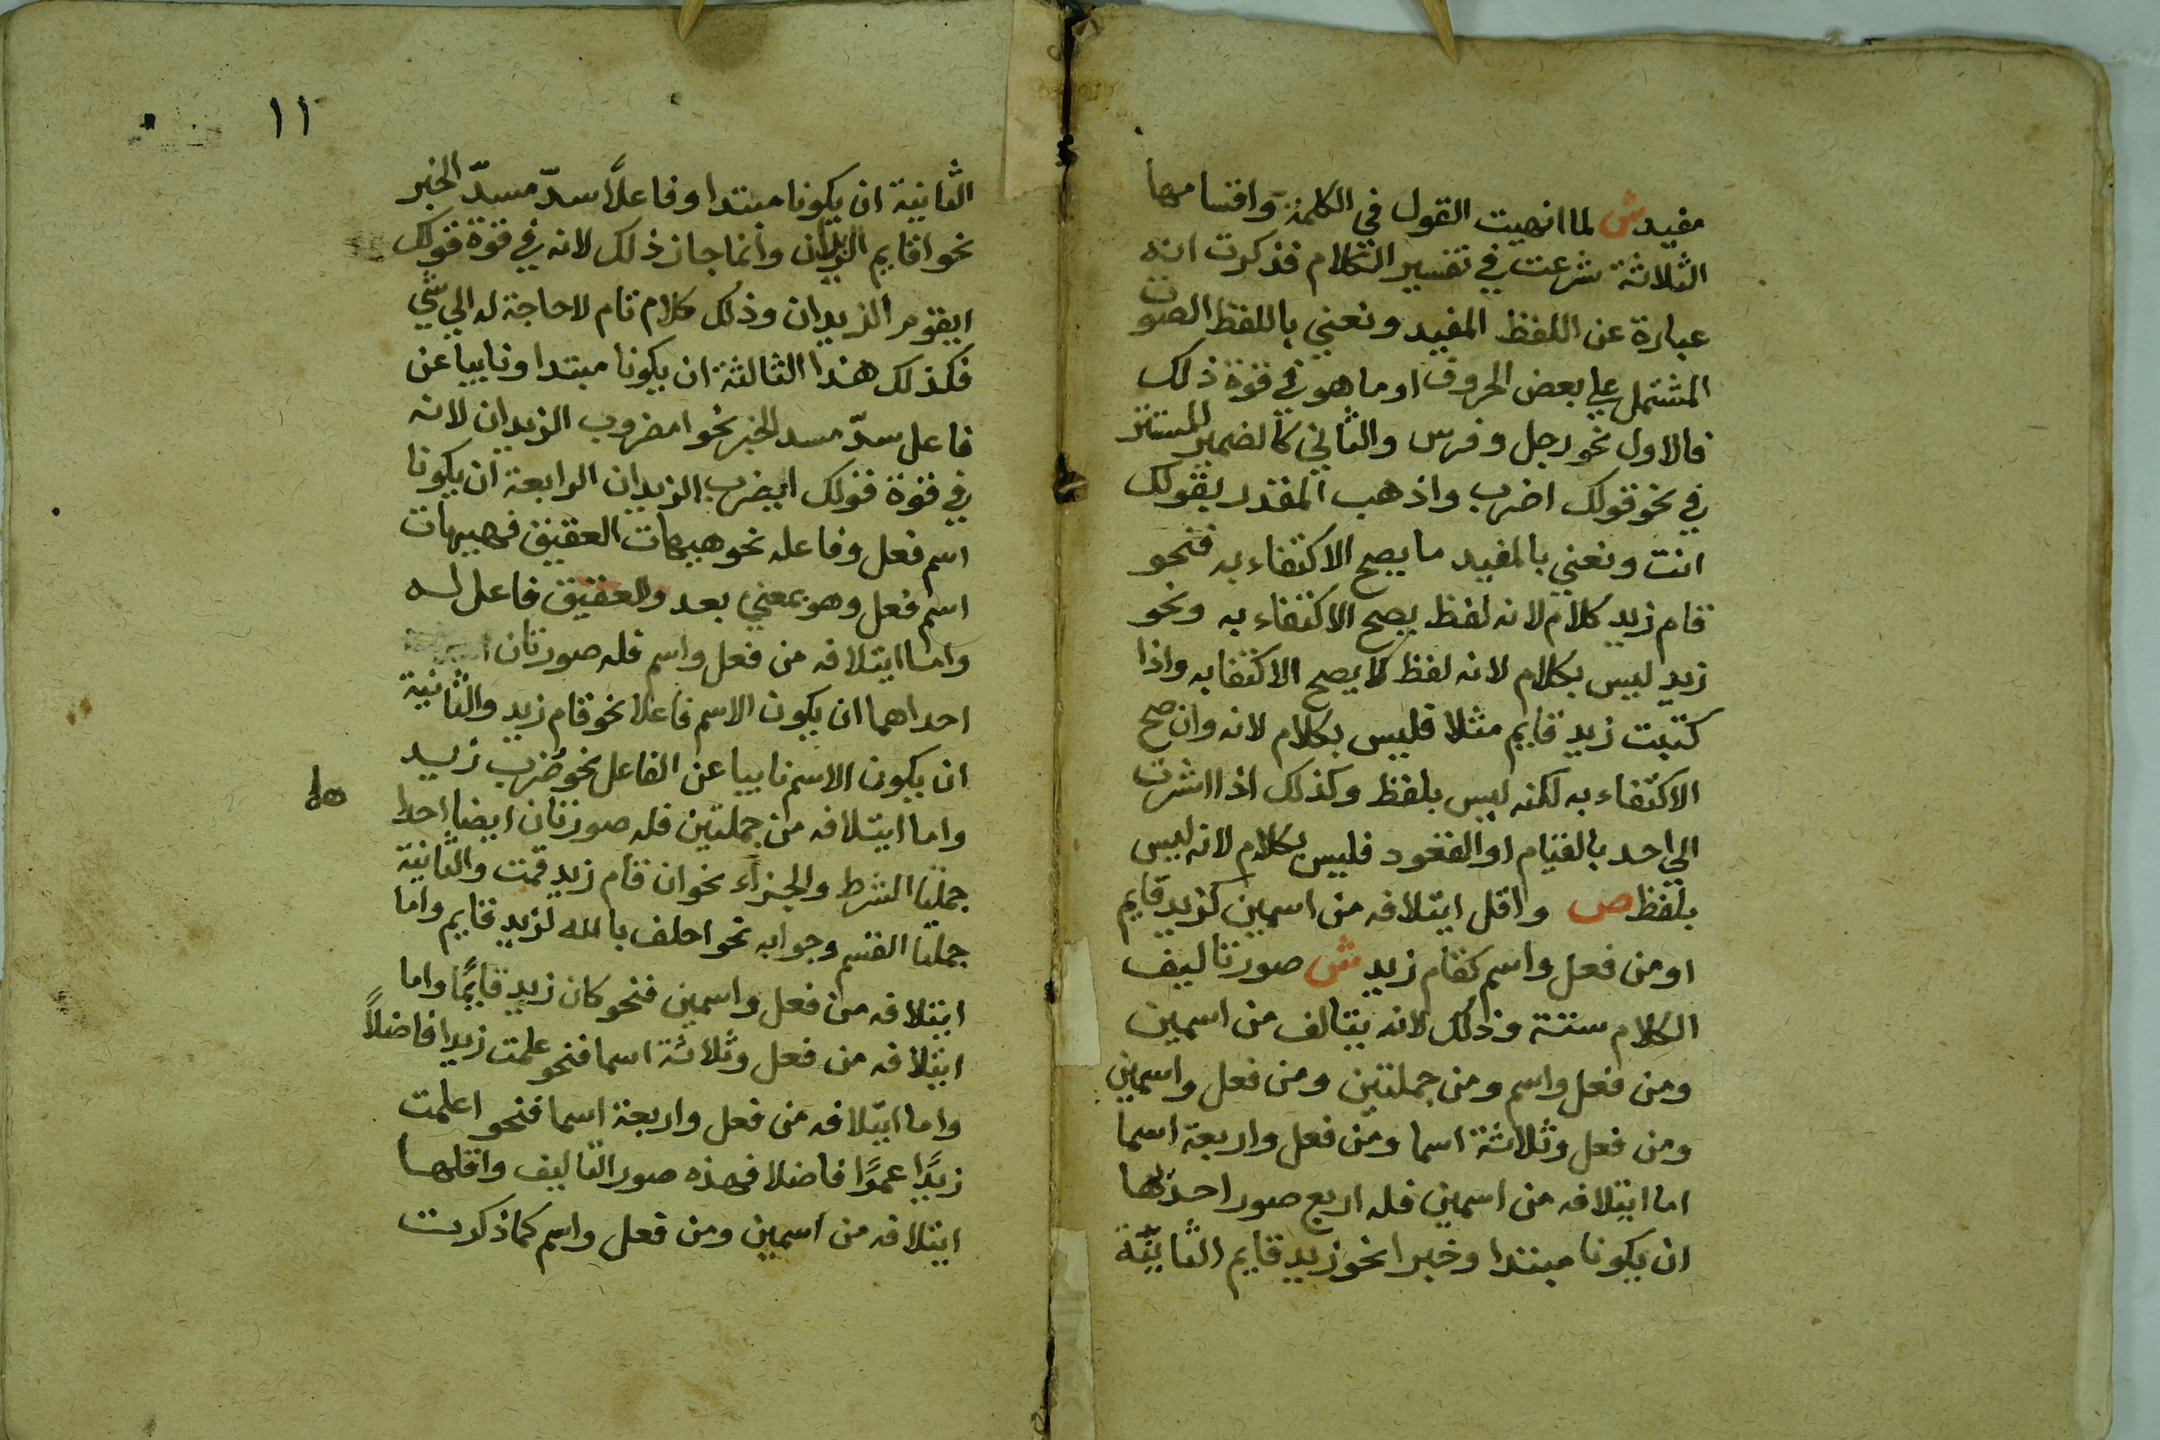 مفيد ش لما انهيت القول في الكلمة واقسامها
الثلاثة شرعت في تفسير الكلام فذكرت انه
عبارة عن اللفظ المفيد ونعني باللفظ الصوت
المشتمل علي بعض الحروف او ما هو في قوة ذلك
فالاول نحو رجل وفرس والثاني كالضمير المستتر
في نحو قولك اضرب واذهب المقدر بقولك
انت ونعني بالمفيد ما يصح الاكتفاء به فنحو
قام زيد كلام لانه لفظ يصح الاكتفاء به ونحو
زيد ليس بكلام لانه لفظ لا يصح الاكتفا به واذا
كتبت زيد قايم مثلا فليس بكلام لانه وان صح
الاكتفاء به لكنه ليس بلفظ وكذلك اذا اشرت
الي احد بالقيام او القعود فليس بكلام لانه ليس
بلفظ ص واقل ايتلافه من اسمين كزيد قايم
او من فعل واسم كقام زيد ش صور تاليف
الكلام ستة وذلك لانه يتالف من اسمين
ومن فعل واسم ومن جملتين ومن فعل واسمين
ومن فعل وثلاثة اسما ومن فعل واربعة اسما
اما ايتلافه من اسمين فله اربع صور احدها
ان يكونا مبتدا وخبرا نحو زيد قايم الثانية
١١
الثانية ان يكونا مبتدا وفاعلًا سدّ مسدّ الخبر
نحو اقايم الزيدان وانما جاز ذلك لانه في قوة قولك
ايقوم الزيدان وذلك كلام تام لا حاجة له الي شي
فكذلك هذا الثالثة ان يكونا مبتدا ونايبا عن
فاعل سدّ مسد الخبر نحو امضروب الزيدان لانه
في قوة قولك ايضرب الزيدان الرابعة ان يكونا
اسم فعل وفاعله نحو هيهات العقيق فهيهات
اسم فعل وهو بمعني بعد والعقيق فاعل له
واما ايتلافه من فعل واسم فله صورتان
احداهما ان يكون الاسم فاعلا نحو قام زيد والثانية
ان يكون الاسم نايبا عن الفاعل نحو ضرب زيد
واما ايتلافه من جملتين فله صورتان ايضا احدا
هما
جملتا الشرط والجزاء نحو ان قام زيد قمت والثانية
جملتا القسم وجوابه نحو احلف بالله لزيد قايم واما
ايتلافه من فعل واسمين فنحو كان زيد قايمًا واما
ايتلافه من فعل وثلاثة اسما فنحو علمت زيدا فاضلًا
واما ايتلافه من فعل واربعة اسما فنحو اعلمت
زيدًا عمرًا فاضلا فهذه صور التاليف واقلها
ايتلافه من اسمين ومن فعل واسم كما ذكرت